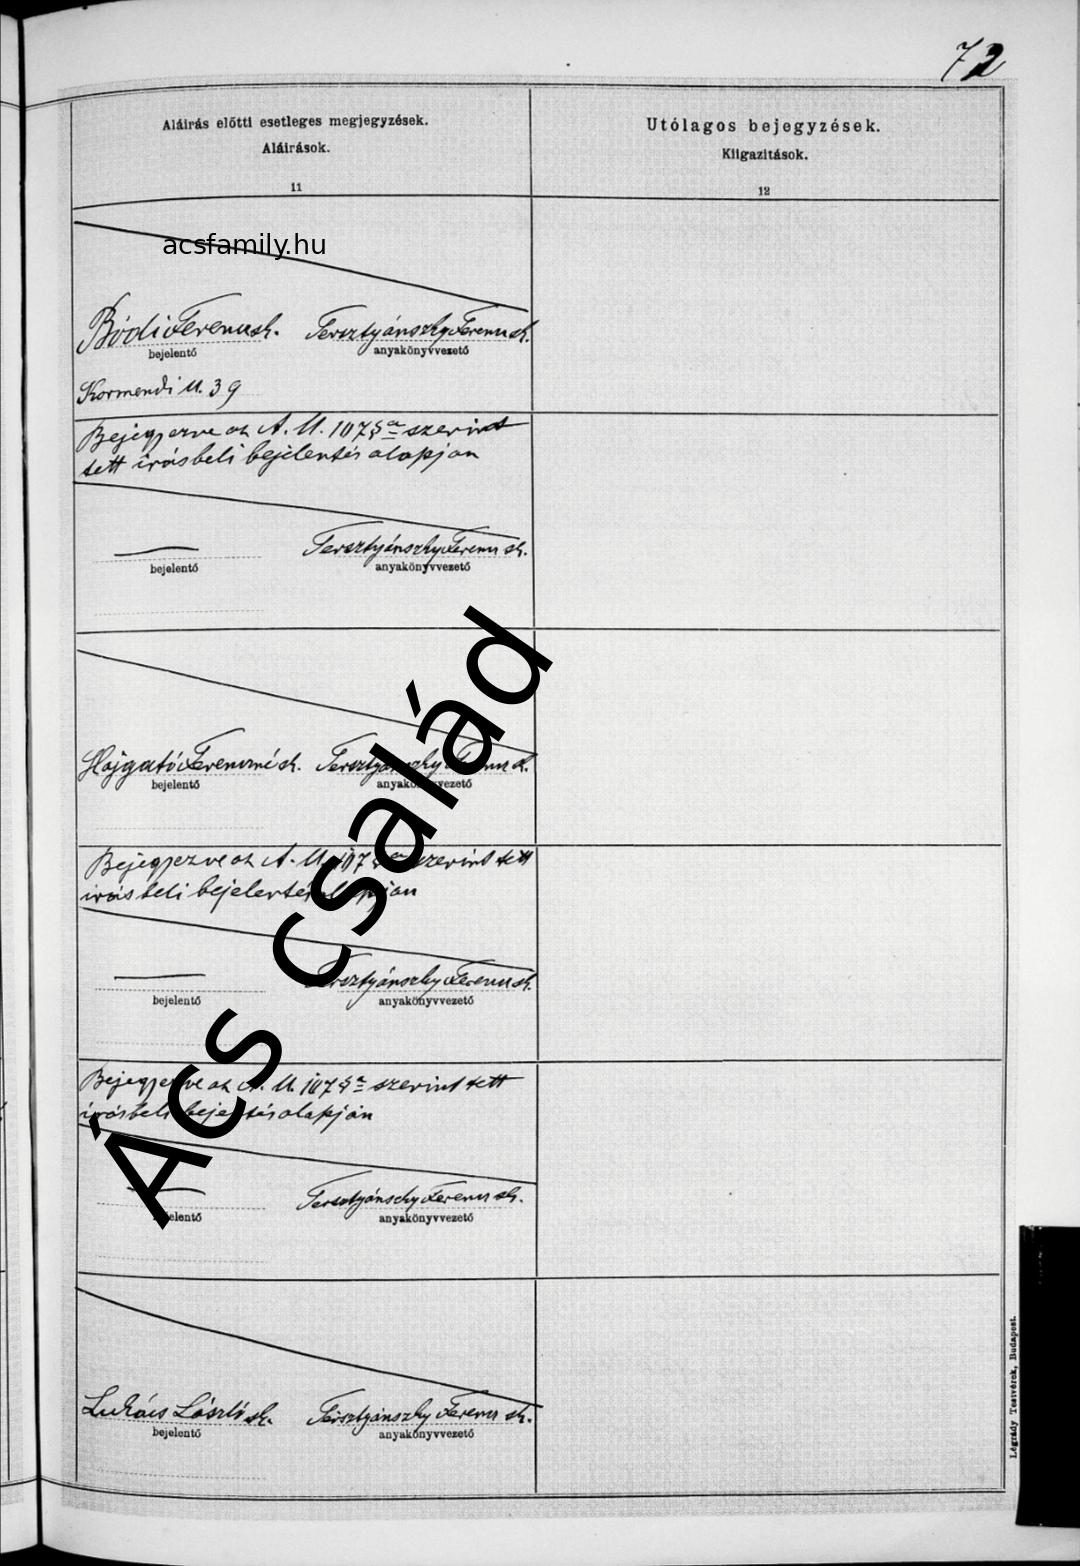 72
Aláirás előtti esetleges megjegyzések.
Aláirások.
11
Utólagos bejegyzések.
Kiigazitások.
12
acsfamily.hu
Bódi Ferenc sk. Tersztyánszky Ferenc sk.
bejelentő anyakönyvvezető
Körmendi u. 39
Bejegyezve az A. U. 107 §-a szerint
tett irásbeli bejelentés alapján
Tersztyánszky Ferenc sk.
bejelentő anyakönyvvezető
Hajgató Ferencné sk. Tersztyánszky Ferenc sk.
bejelentő anyakönyvvezető
Bejegyezve az A. U. 107 §-a szerint tett
irásbeli bejelentés alapján
Tersztyánszky Ferenc sk.
bejelentő anyakönyvvezető
Bejegyezve az A. U. 107 §-a szerint tett
irásbeli bejelentés alapján
Tersztyánszky Ferenc sk.
bejelentő anyakönyvvezető
Lukács László sk. Tersztyánszky Ferenc sk.
bejelentő anyakönyvvezető
Ács család
Légrády Testvérek, Budapest.